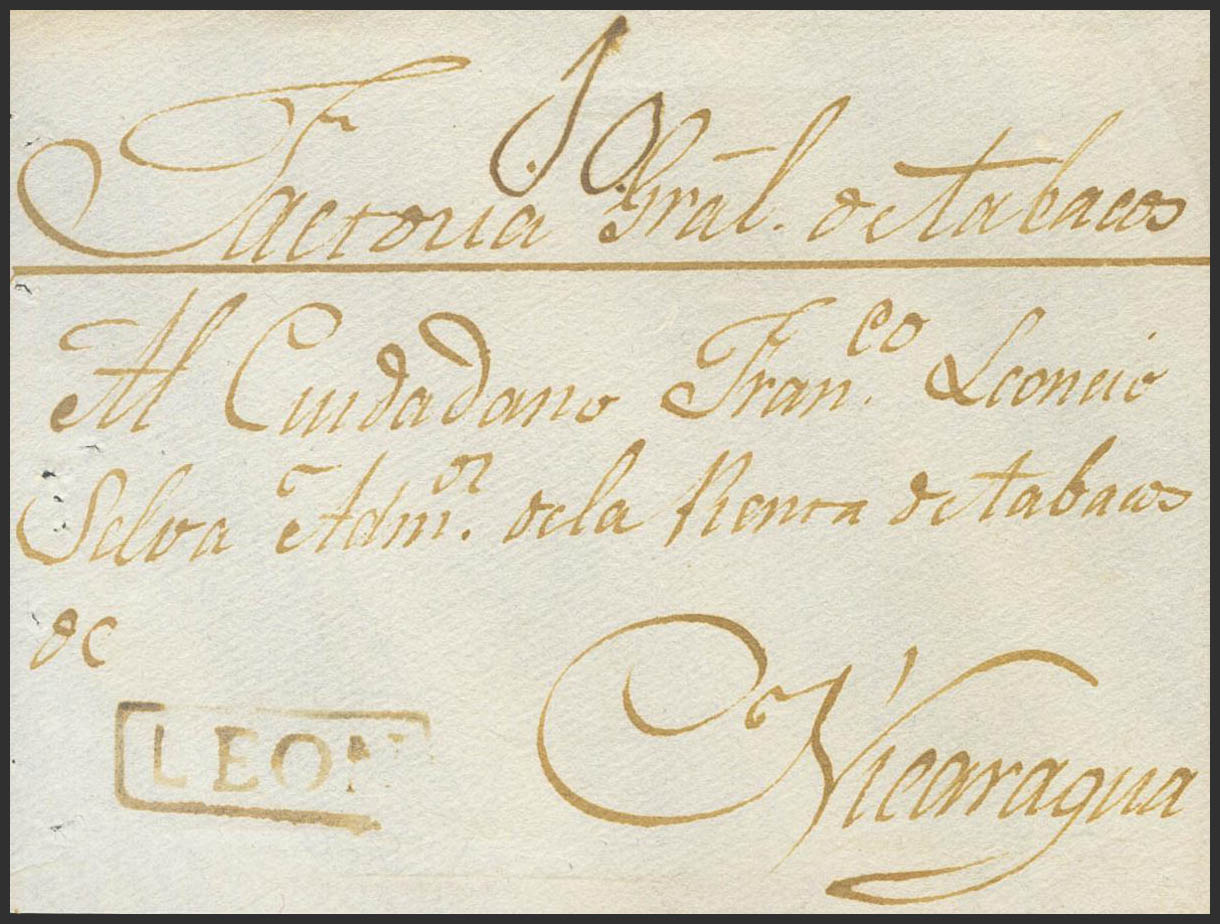 10
Factoria Gral. de tabacos
Al Ciudadano Fran.co Leoncio
Selva Adm.or de la Renta de tabacos
de
Nicaragua
LEON